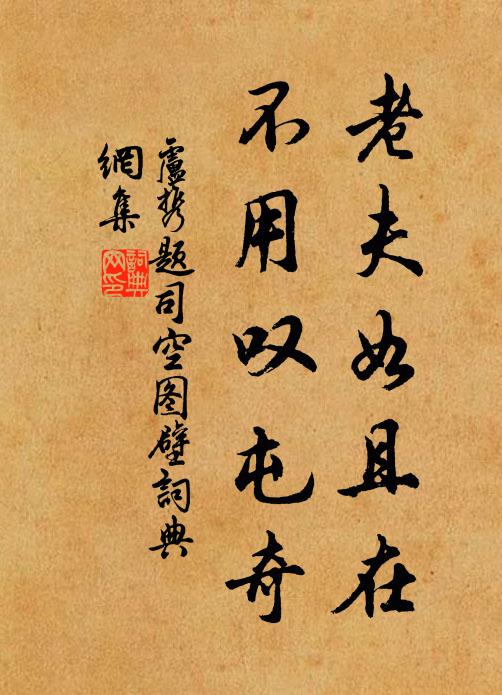 老夫如且在
不用叹屯奇
盧携题司空图壁詞典
網集
詞典
网印